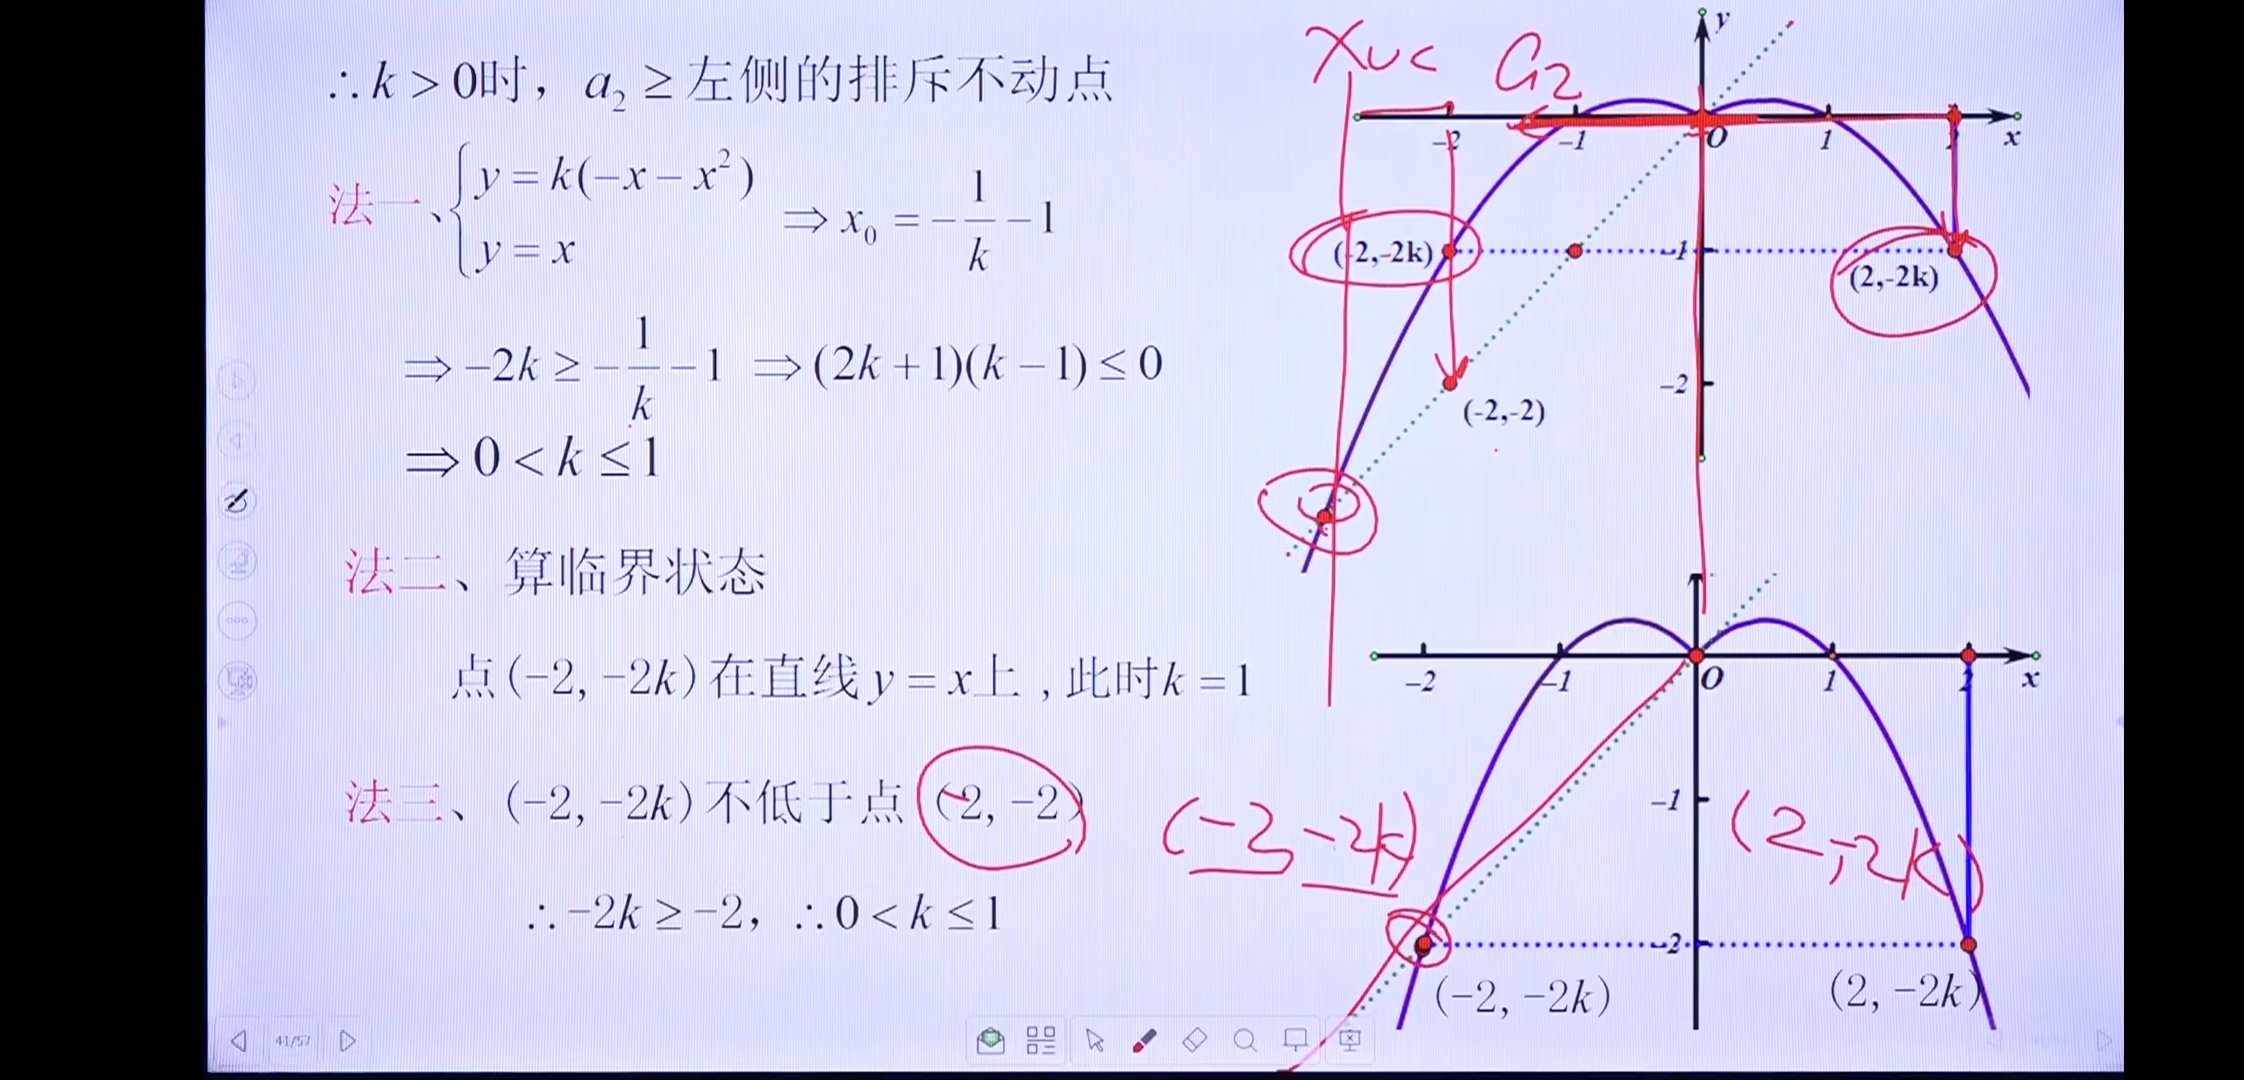 ∴k > 0时，a₂ ≥ 左侧的排斥不动点
法一、{ y = k(−x − x²)
y = x ⇒ x₀ = −1/k − 1
⇒ −2k ≥ −1/k − 1 ⇒ (2k + 1)(k − 1) ≤ 0
⇒ 0 < k ≤ 1
法二、算临界状态
点(−2, −2k)在直线y = x上 , 此时k = 1
法三、(−2, −2k)不低于点(−2, −2)
∴−2k ≥ −2，∴0 < k ≤ 1
41/57
y
−2 −1 O 1 x
(-2,-2k) −1 (2,-2k)
−2
(-2,-2)
−2 −1 O 1 2 x
−1
(−2 −2k) (2,−2k)
−2
(−2, −2k) (2, −2k)